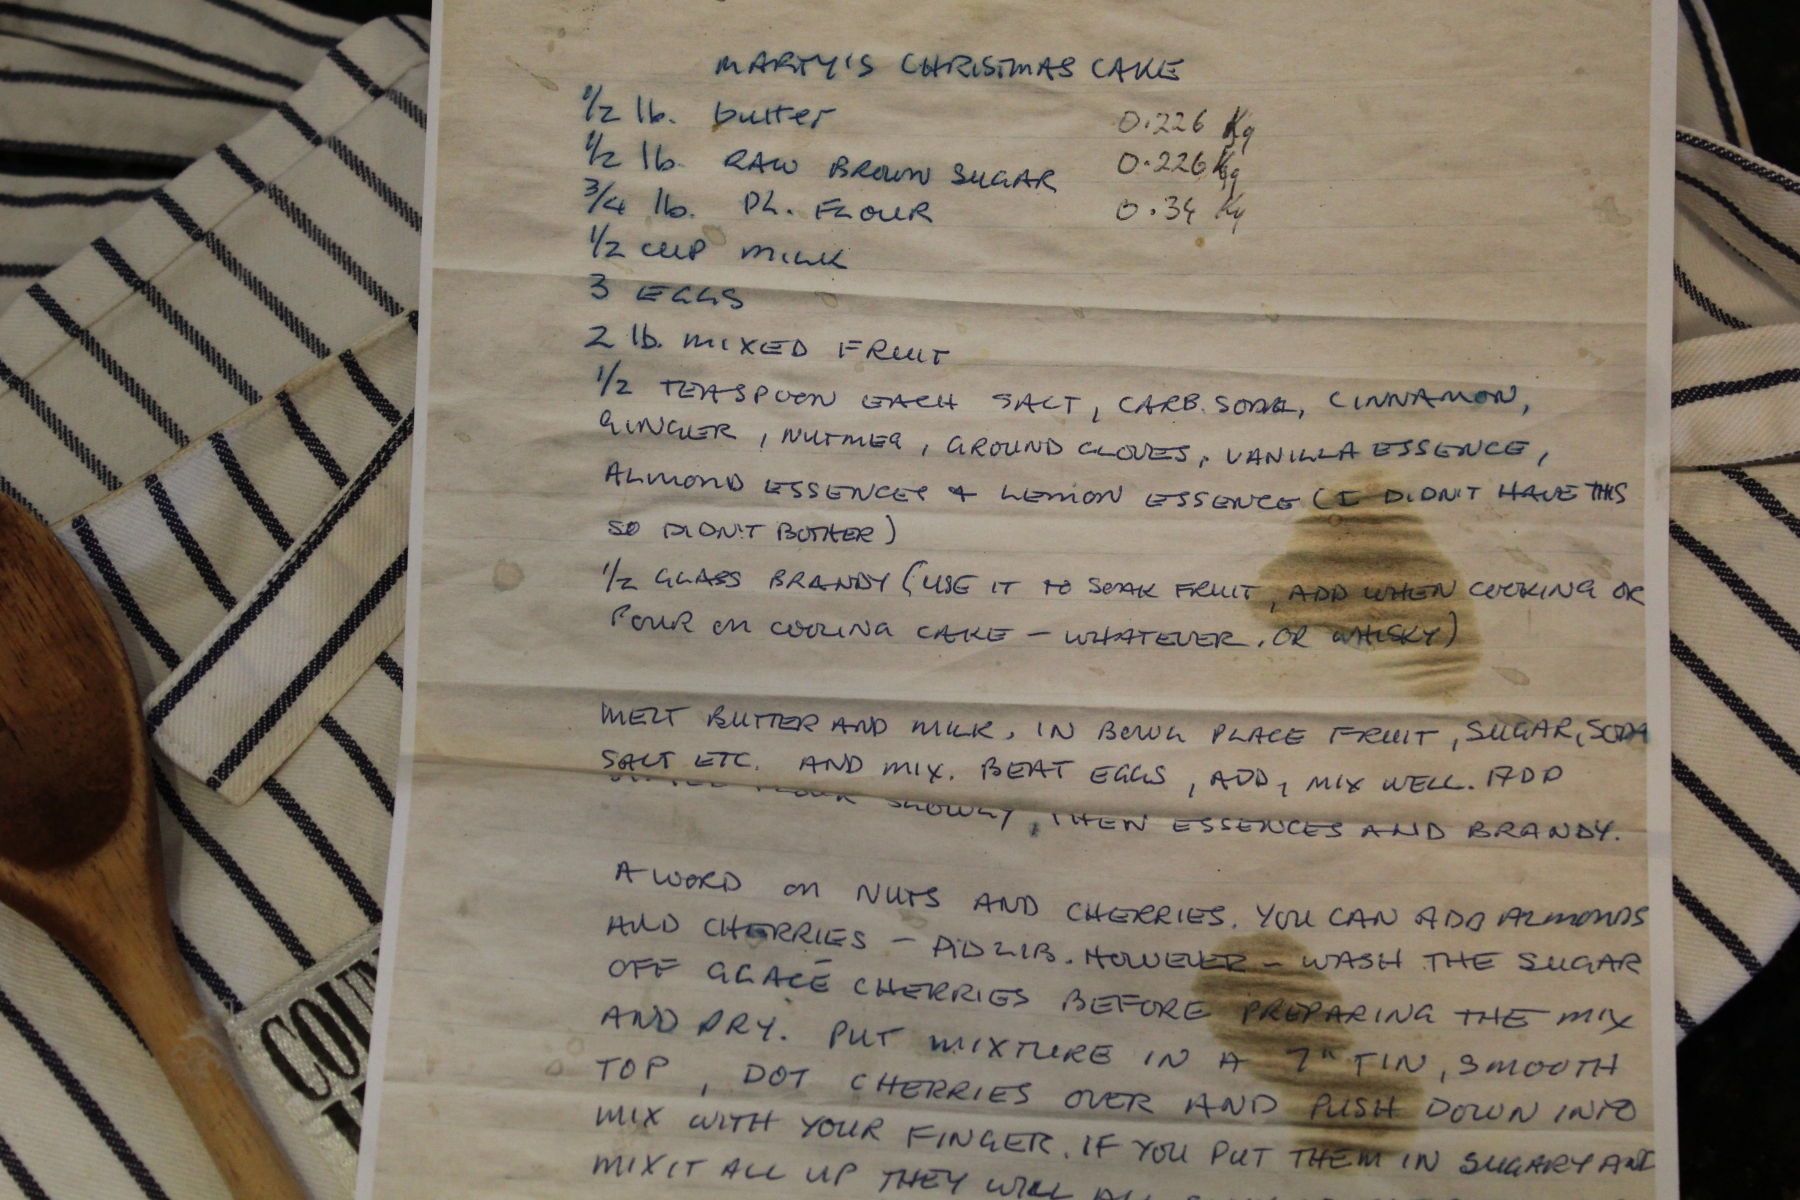 MARTY'S CHRISTMAS CAKE
1/2 lb. butter 0.226 Kg
1/2 lb. RAW BROWN SUGAR 0.226 Kg
3/4 lb. PL. FLOUR 0.34 Kg
1/2 CUP MILK
3 EGGS
2 lb. MIXED FRUIT
1/2 TEASPOON EACH SALT, CARB. SODA, CINNAMON,
GINGER, NUTMEG, GROUND CLOVES, VANILLA ESSENCE,
ALMOND ESSENCES & LEMON ESSENCE (I DIDN'T HAVE THIS
SO DIDN'T BOTHER)
1/2 GLASS BRANDY (USE IT TO SOAK FRUIT, ADD WHEN COOKING OR
POUR ON COOLING CAKE - WHATEVER. OR WHISKY)
MELT BUTTER AND MILK. IN BOWL PLACE FRUIT, SUGAR, SODA
SALT ETC. AND MIX. BEAT EGGS, ADD, MIX WELL. ADD
FLOUR SLOWLY, THEN ESSENCES AND BRANDY.
A WORD ON NUTS AND CHERRIES. YOU CAN ADD ALMONDS
AND CHERRIES - AD LIB. HOWEVER - WASH THE SUGAR
OFF GLACÉ CHERRIES BEFORE PREPARING THE MIX
AND DRY. PUT MIXTURE IN A 7" TIN, SMOOTH
TOP, DOT CHERRIES OVER AND PUSH DOWN INTO
MIX WITH YOUR FINGER. IF YOU PUT THEM IN SUGARY AND
MIX IT ALL UP THEY WILL ALL
COUN